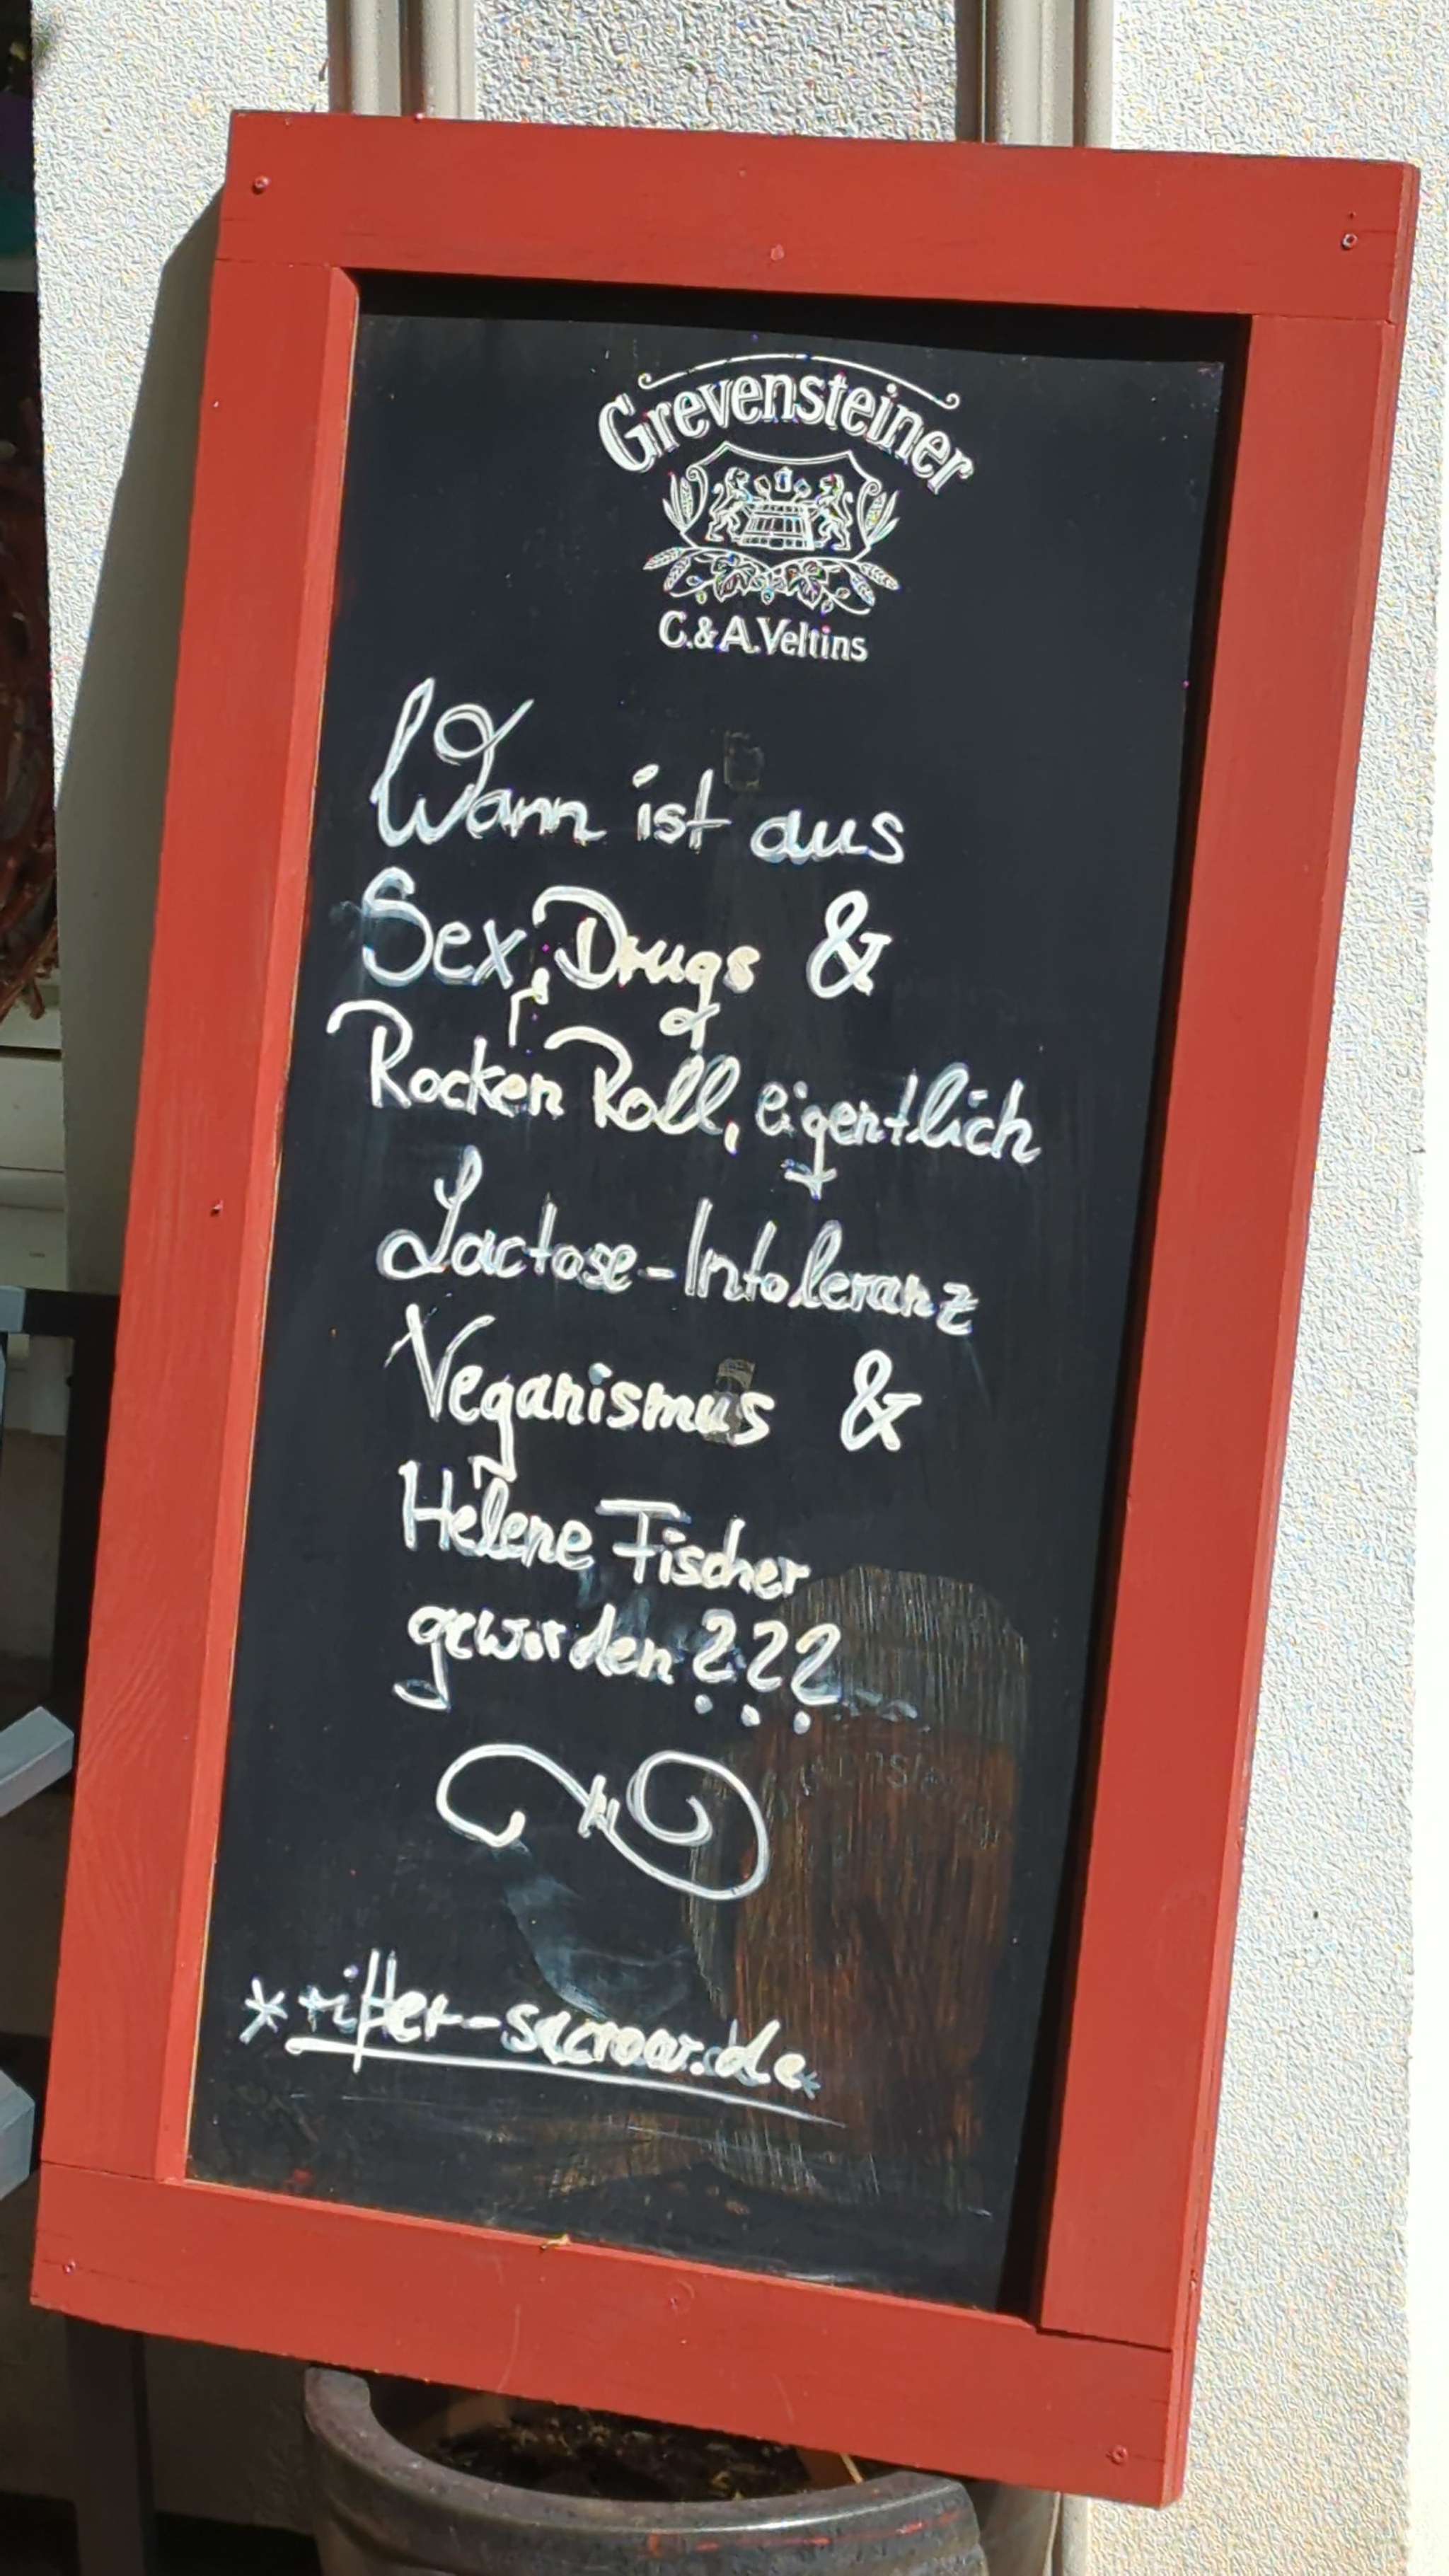 Grevensteiner
C.&A.Veltins
Wann ist aus
Sex, Drugs &
Rocken Roll, eigentlich
Lactose-Intoleranz
Veganismus &
Helene Fischer
geworden???